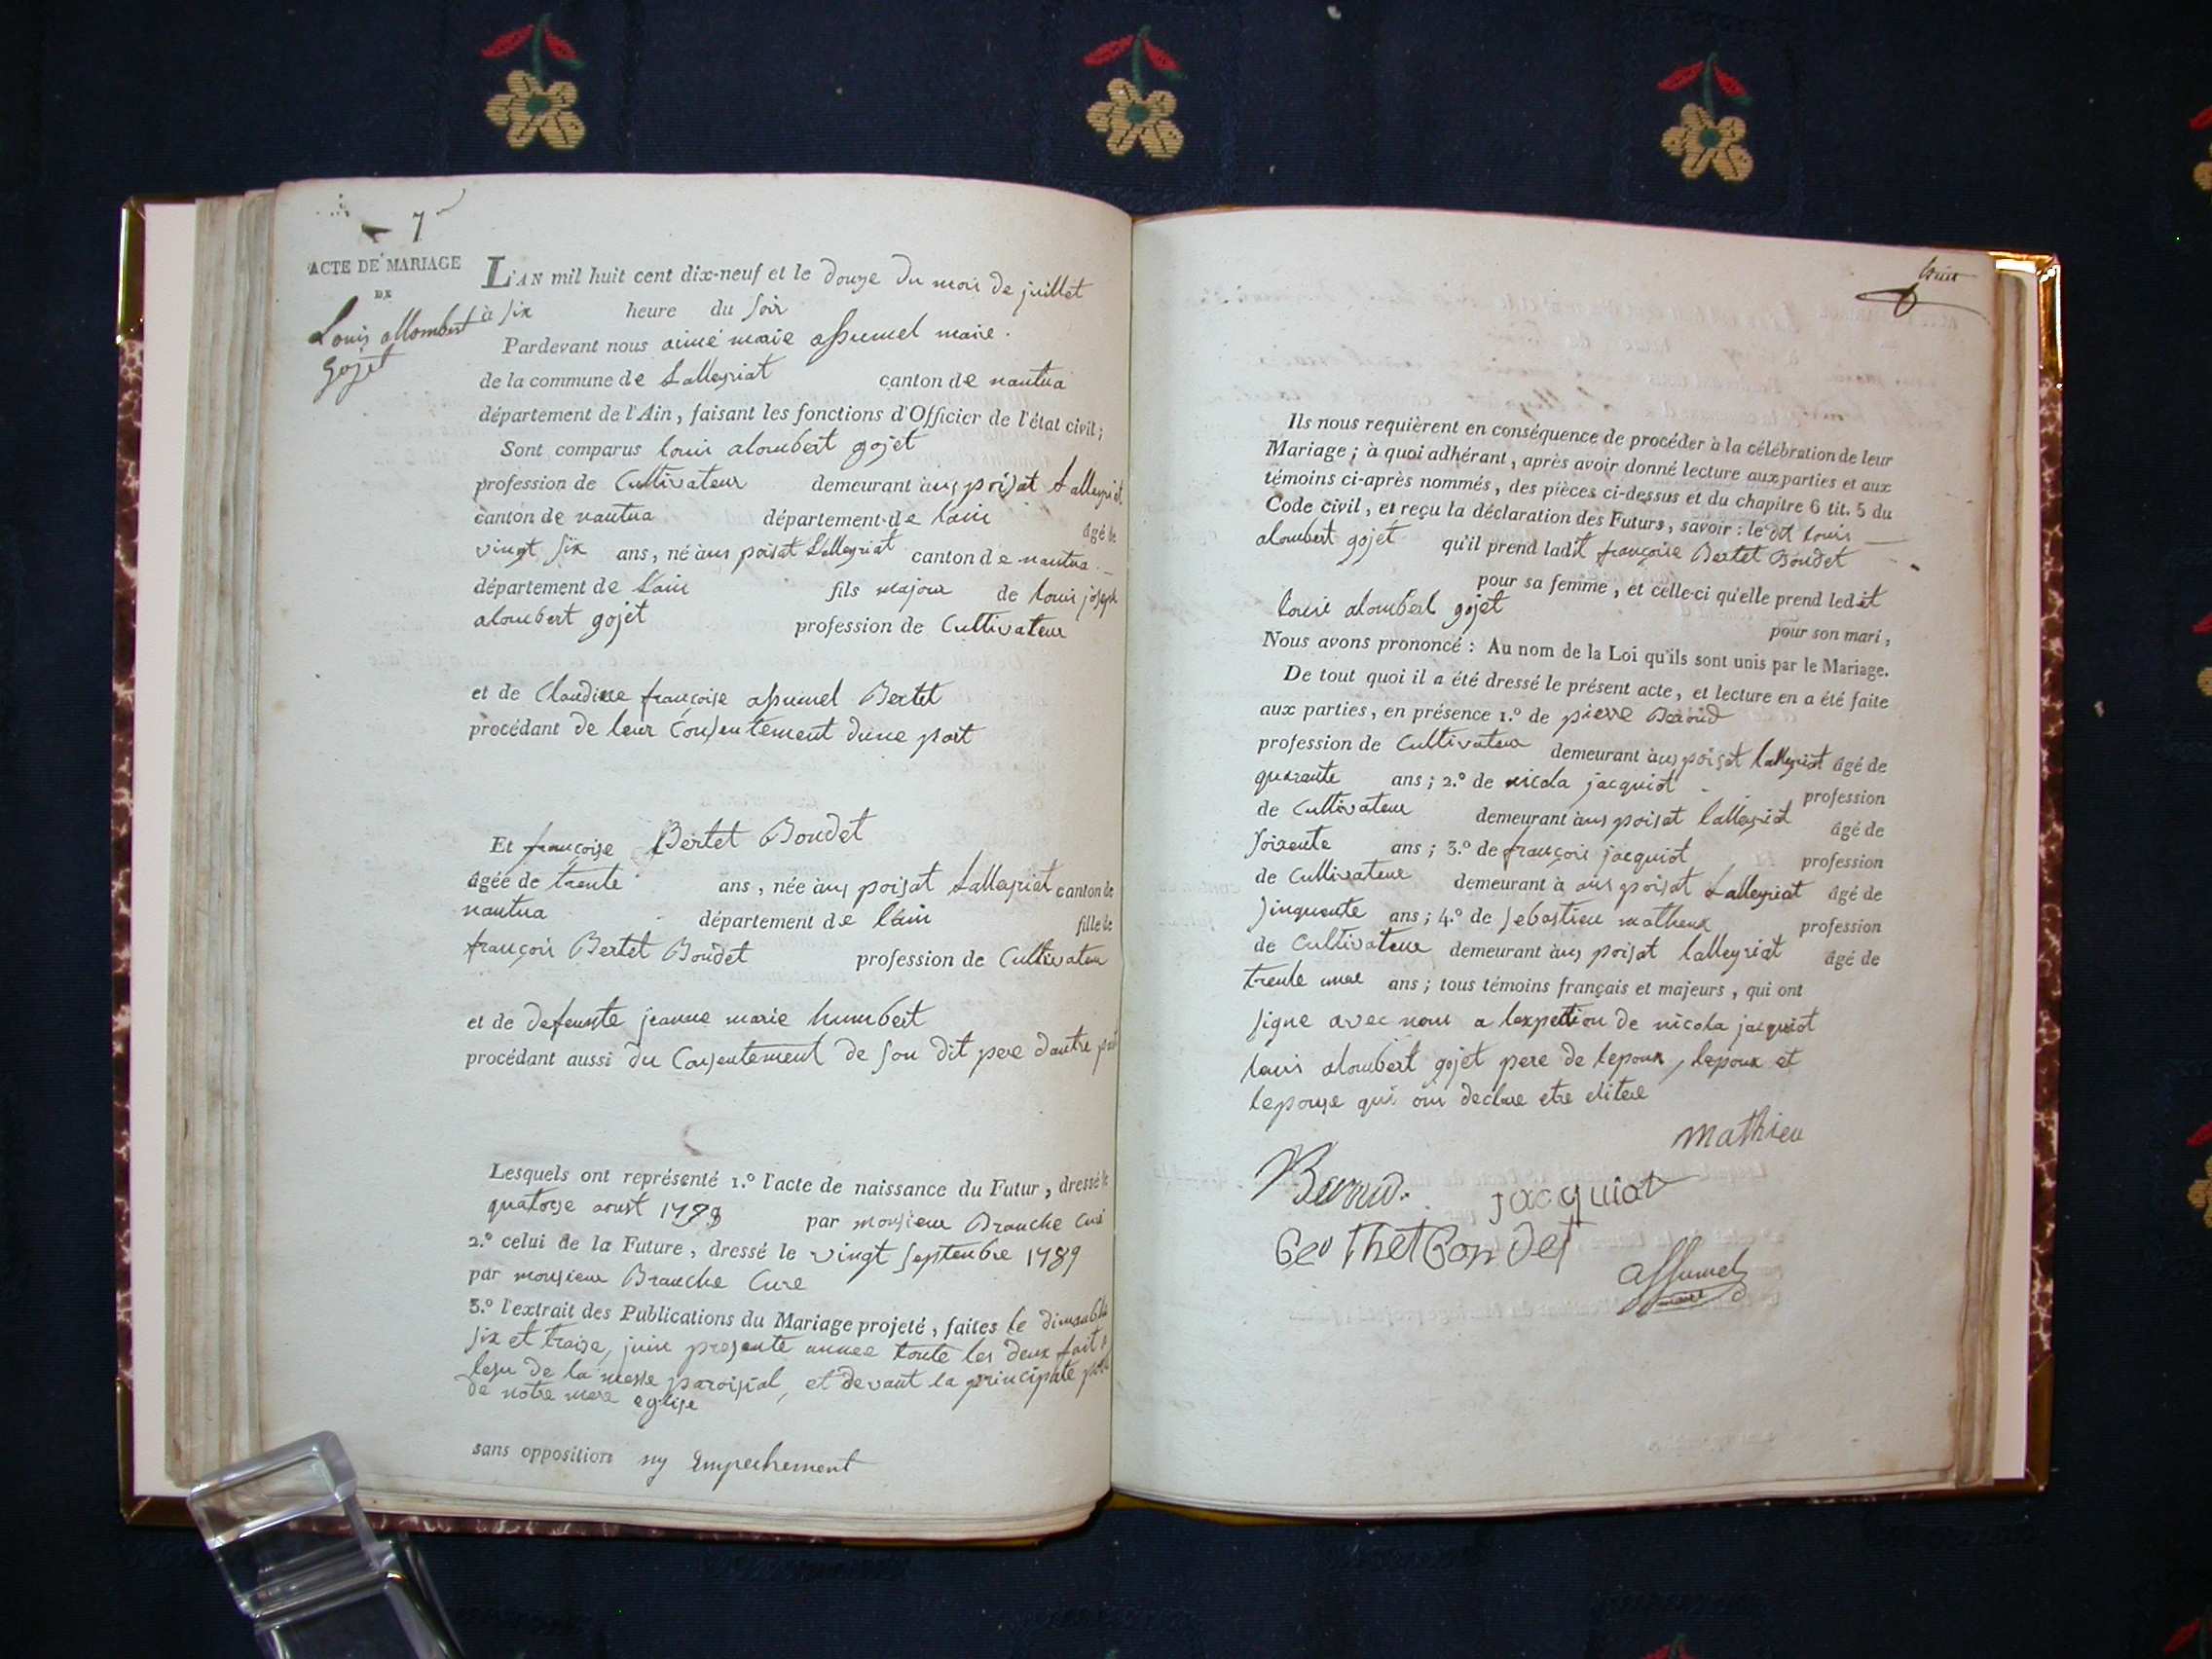 7
ACTE DE MARIAGE
DE
Louis allombert
gojet
L'AN mil huit cent dix-neuf et le douze du mois de juillet
à six heure du soir
Pardevant nous aimé marie assumel maire.
de la commune de Lalleyriat canton de nantua
département de l'Ain, faisant les fonctions d'Officier de l'état civil;
Sont comparus louis aloubert gojet
profession de Cultivateur demeurant aus poisat Lalleyriat
canton de nantua département de lain âgé de
vingt six ans, né aus poisat Lalleyriat canton de nantua
département de Lain fils majeur de louis joseph
aloubert gojet profession de Cultivateur
et de Claudine françoise assumel Bertet
procédant de leur Consentement dune part
Et françoise Bertet Boudet
âgée de trente ans, née aus poisat Lalleyriat canton de
nantua département de lain fille de
françois Bertet Boudet profession de Cultivateur
et de defeunte jeanne marie humbert
procédant aussi du Consentement de son dit pere dautre part
Lesquels ont représenté 1.º l'acte de naissance du Futur, dressé le
quatorse aoust par monsieur Branche Curé
2.º celui de la Future, dressé le vingt septenbre 1789
par monsieur Branche Cure
3.º l'extrait des Publications du Mariage projeté, faites le
six et traise, juin presente annee toute les deux fait a
lesu de la messe paroisial, et devant la principale
de notre mere eglise
sans opposition ny Empechement
huit
Ils nous requièrent en conséquence de procéder à la célébration de leur
Mariage; à quoi adhérant, après avoir donné lecture aux parties et aux
témoins ci-après nommés, des pièces ci-dessus et du chapitre 6 tit. 5 du
Code civil, et reçu la déclaration des Futurs, savoir: le dit louis
aloubert gojet qu'il prend ladit françoise Bertet Boudet
pour sa femme, et celle-ci qu'elle prend ledit
louis aloubert gojet pour son mari,
Nous avons prononcé: Au nom de la Loi qu'ils sont unis par le Mariage.
De tout quoi il a été dressé le présent acte, et lecture en a été faite
aux parties, en présence 1.º de pierre Beroud
profession de Cultivateur demeurant aus poisat lalleyriat âgé de
quarante ans; 2.º de nicola jacquiot profession
de Cultivateur demeurant aus poisat lalleyriat âgé de
soixente ans; 3.º de françois jacquiot profession
de Cultivateur demeurant à aus poisat Lalleyriat âgé de
sinquente ans; 4.º de sebastien matheux profession
de Cultivateur demeurant aus poisat lalleyriat âgé de
trente unne ans; tous témoins français et majeurs, qui ont
signe avec nous a lexpetion de nicola jacquiot
louis aloubert gojet pere de lepoux, lepoux et
lepouse qui ont declare etre elitere
mathieu
Beroud. jacquiot
Berthet Bondet
assumel
maire